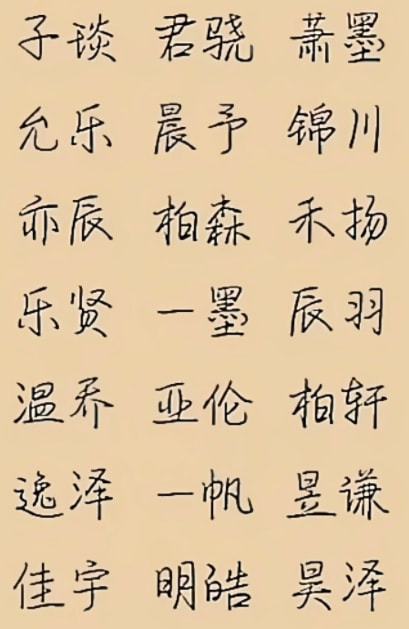 子琰 君骁 萧墨
允乐 晨予 锦川
亦辰 柏森 禾扬
乐贤 一墨 辰羽
温乔 亚伦 柏轩
逸泽 一帆 昱谦
佳宇 明皓 昊泽